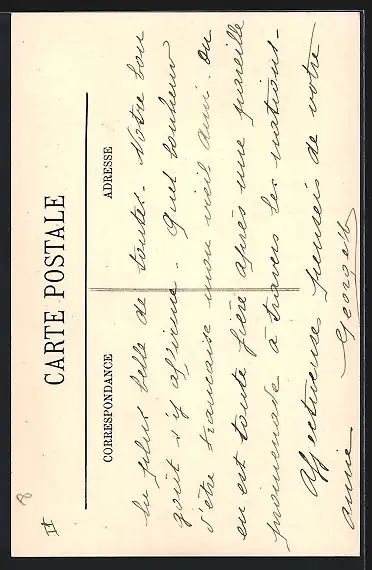 II
8
CARTE POSTALE
CORRESPONDANCE
ADRESSE
la plus belle de toutes. Notre bon
goût s'y affirme. Quel bonheur
d'être française mon vieil ami. On
en est toute fière après une pareille
promenade à travers les nations.
Affectueuses pensées de votre
amie
Georgette